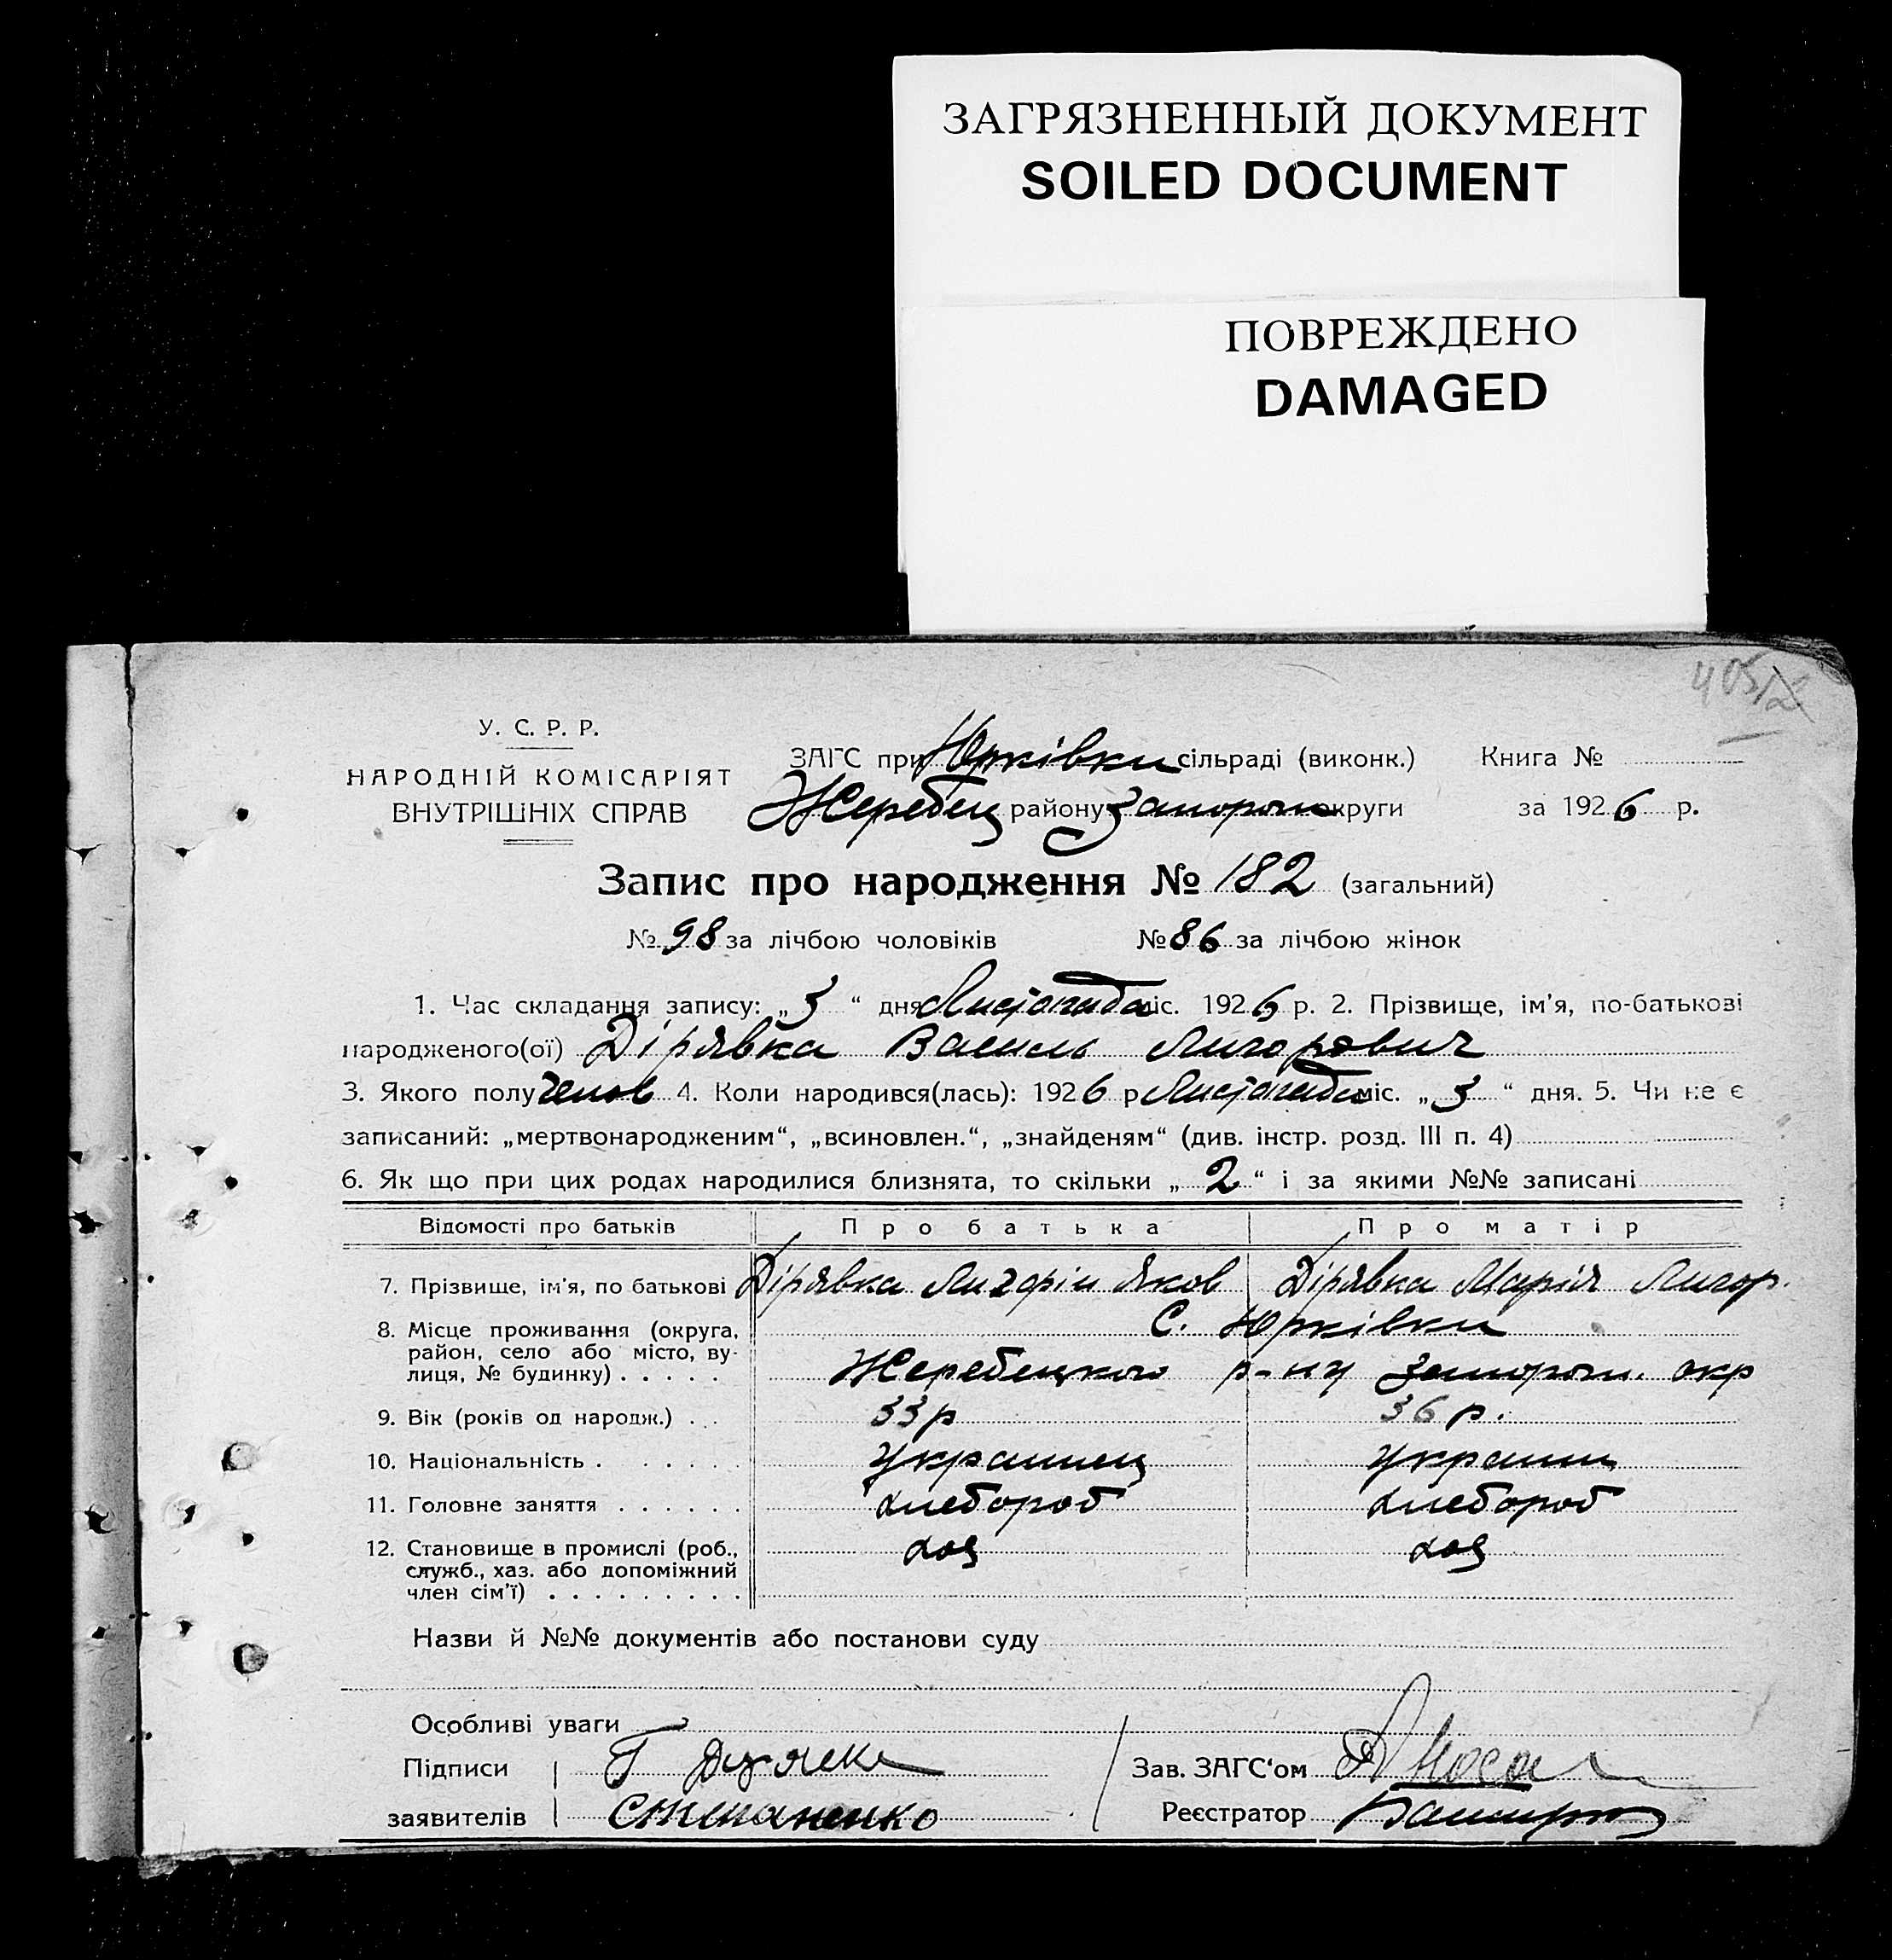 ЗАГРЯЗНЕННЫЙ ДОКУМЕНТ
SOILED DOCUMENT
ПОВРЕЖДЕНО
DAMAGED
У. С. Р. Р.
НАРОДНІЙ КОМІСАРІЯТ
ВНУТРІШНІХ СПРАВ
ЗАГС при Юрківки сільраді (виконк.) Книга №
Жеребец району Запорож округи за 1926 р.
Запис про народження № 182 (загальний)
№ 98 за лічбою чоловіків № 86 за лічбою жінок
1. Час складання запису: „3“ дня Листопада міс. 1926 р. 2. Прізвище, ім'я, по-батькові
народженого(ої) Дірявка Василь Лигорович
3. Якого полу Чолов 4. Коли народився(лась): 1926 р Листопада міс. „3“ дня. 5. Чи не є
записаний: „мертвонародженим“, „всиновлен.“, „знайденям“ (див. інстр. розд. III п. 4)
6. Як що при цих родах народилися близнята, то скільки „2“ і за якими №№ записані
Відомості про батьків Про батька Про матір
7. Прізвище, ім'я, по батькові Дірявка Яков Дірявка Марія Лигор.
8. Місце проживання (округа, С. Юрківки
район, село або місто, ву-
лиця, № будинку) . . . . . Жеребецкого р-ну Запорож. окр
9. Вік (років од народж.) . . 33 р 36 р.
10. Національність . . . . . . украинец украин
11. Головне заняття . . . . . . хлебороб хлебороб
12. Становище в промислі (роб., хоз хоз
служб., хаз. або допоміжний
член сім'ї) . . . . . . . . .
Назви й №№ документів або постанови суду
Особливі уваги
Підписи Г Зав. ЗАГС'ом
заявителів Степаненко Реєстратор